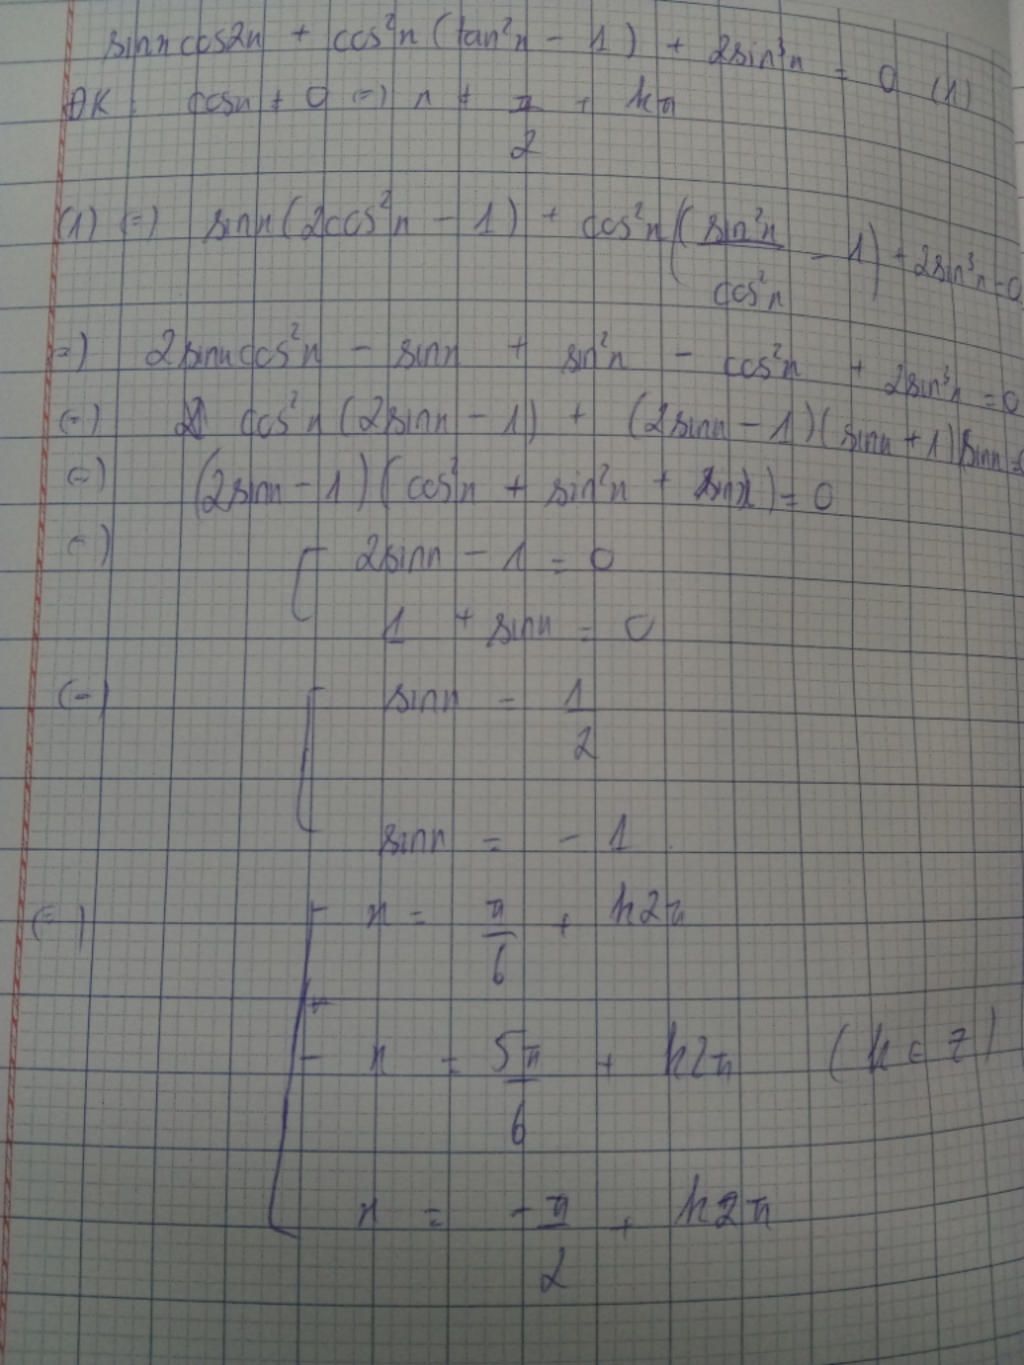 sinx cos2x + cos²x (tan²x - 1) + 2sin³x = 0 (1)
ĐK: cosx ≠ 0 (=) x ≠ π/2 + kπ
(1) (=) sinx (2cos²x - 1) + cos²x (sin²x/cos²x - 1) + 2sin³x = 0
(=) 2sinx cos²x - sinx + sin²x - cos²x + 2sin³x = 0
(=) cos²x (2sinx - 1) + (2sinx - 1)(sinx + 1)sinx = 0
(=) (2sinx - 1)(cos²x + sin²x + sinx) = 0
(=) [ 2sinx - 1 = 0
1 + sinx = 0
(=) [ sinx = 1/2
sinx = - 1
(=) [ x = π/6 + k2π
x = 5π/6 + k2π (k ∈ Z)
x = -π/2 + k2π